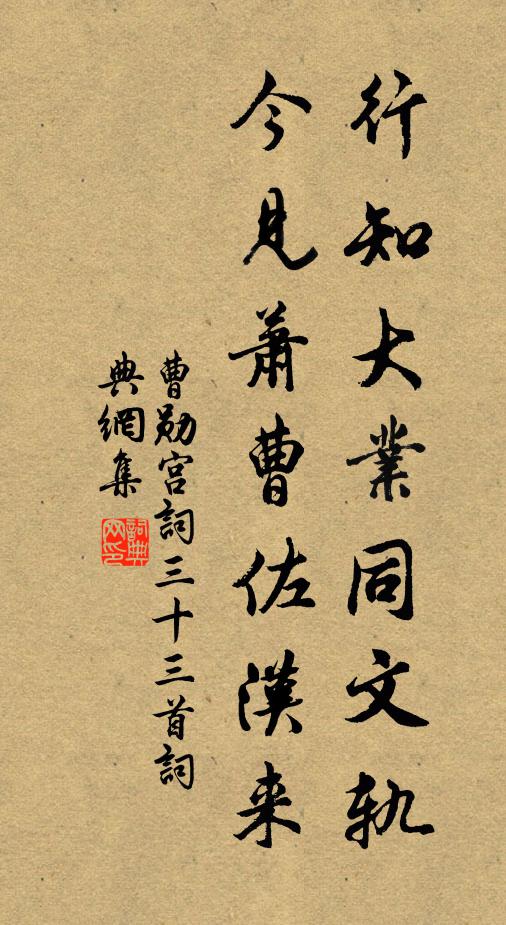 行知大業同文軌
今見蕭曹佐漢来
曹勛宫詞三十三首詞
典網集
詞典网印